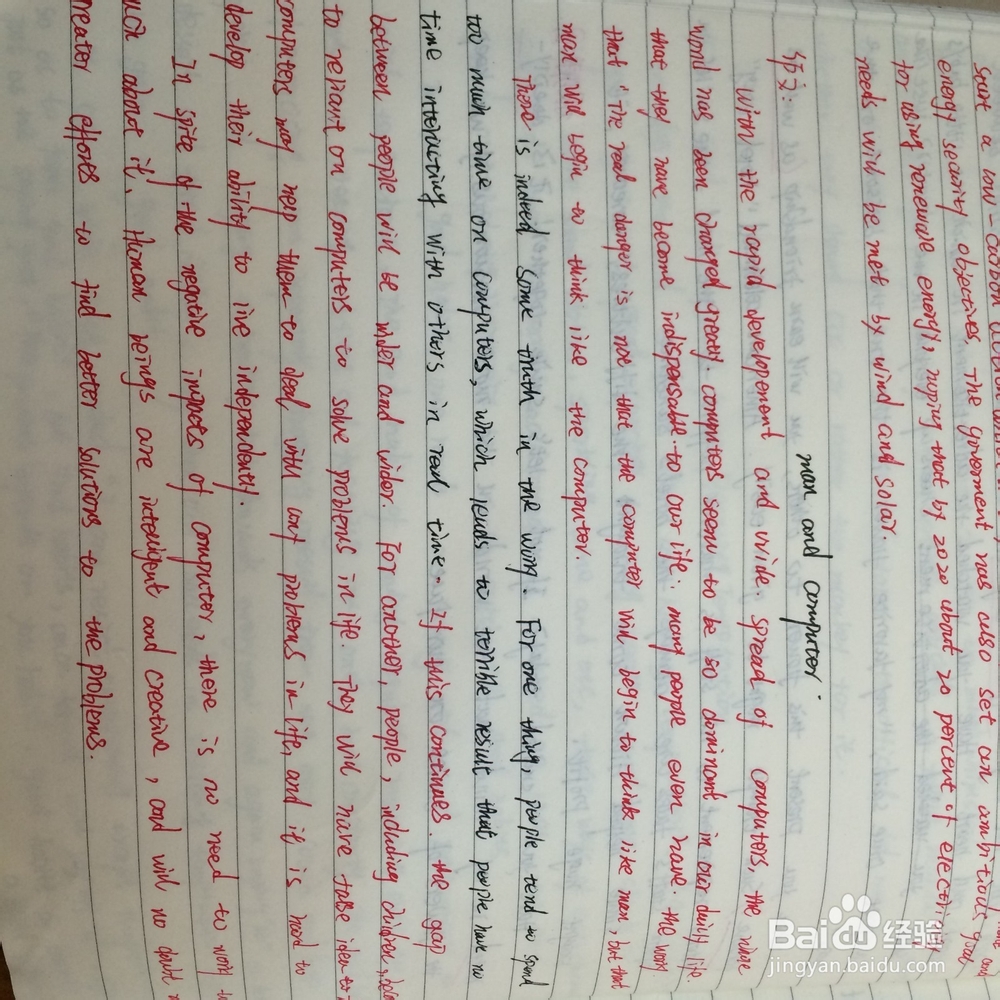 energy security objectives, The goverment has also set an ambitious goal
for using renewable energy, hoping that by 2020 about 20 percent of
needs will be met by wind and solar.
man and computer.
范文:
With the rapid developement and wide spread of computers, the whole
word has been changed greatly. computers seem to be so dominant in our daily life
that they have become indispensable to our life. many people even have the worry
that "The real danger is not that the computer will begin to think like man, but that
man will begin to think like the computer.
There is indeed some truth in the worry. For one thing, people tend to spend
too much time on computers, which leads to terrible result that people have no
time interacting with others in real time. If this continues. the gap
between people will be wider and wider. For another, people, including children,
to reliant on computers to solve problems in life. They will have false idea
computers may help them to deal with any problems in life, and it is hard to
develop their ability to live independently.
In spite of the negative impacts of computer, there is no need to worry
about it. Human beings are intelligent and creative, and will no doubt
greater efforts to find better solutions to the problems.
Baidu 经验
jingyan.baidu.com